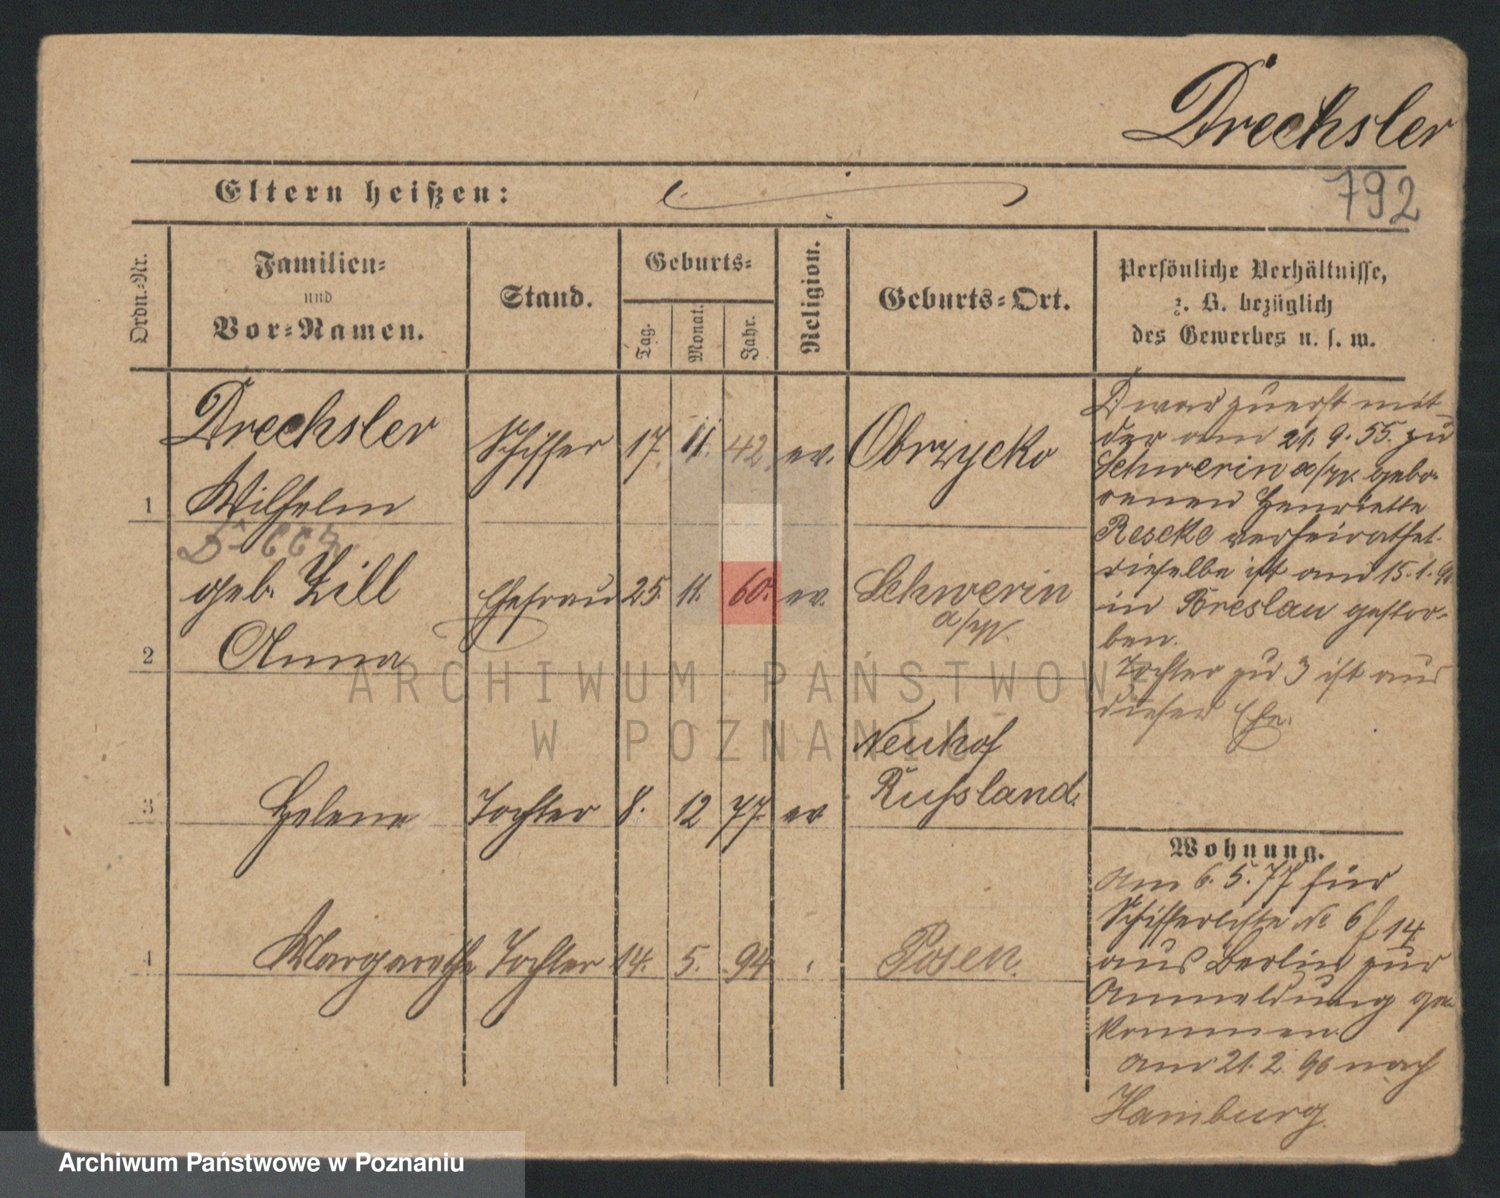 Drechsler
792
Eltern heißen:
Ordn.-Nr.
Familien-
und
Vor-Namen.
Stand.
Geburts-
Tag.
Monat.
Jahr.
Religion.
Geburts-Ort.
Persönliche Verhältnisse,
z. B. bezüglich
des Gewerbes u. s. w.
1
Drechsler
Wilhelm
Schiffer
17.
11.
42.
ev.
Obrzycko
2
geb. Zill
Anna
Ehefrau
25.
11.
60.
ev.
Schwerin
a/W.
3
Helene
Tochter
8.
12
77.
ev
Neuhof
Russland.
4
Margarethe
Tochter
14.
5.
94
Posen.
D. war zuerst mit
der am 21. 9. 55. zu
Schwerin a/W. gebo-
renen Henriette
Rescke verheirathet.
dieselbe ist am 15.1.90
in Breslau gestor-
ben.
Tochter zu 3 ist aus
dieser Ehe.
Wohnung.
Am 6. 5. 77 für
Schifferliste No 6 f 14
aus Berlin zur
Anmeldung ge-
kommen.
Am 21. 2. 90 nach
Hamburg.
ARCHIWUM PAŃSTWOWE
W POZNANIU
Archiwum Państwowe w Poznaniu